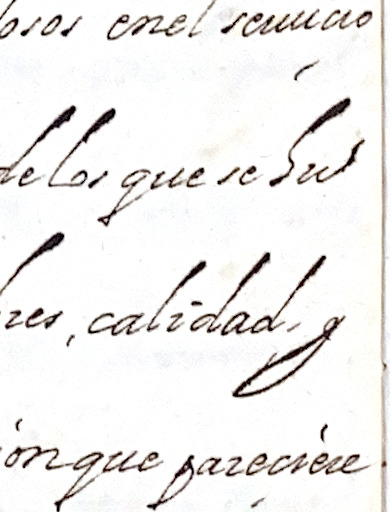 osos en el servicio
de los que se hu
res, calidad, y
ion que pareciere